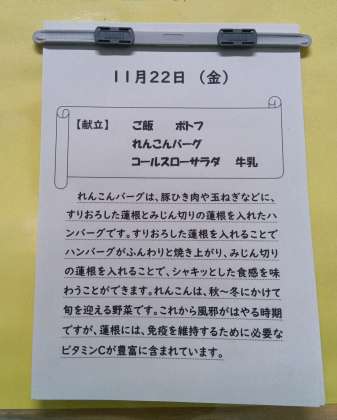 11月22日（金）
【献立】 ご飯 ポトフ
れんこんバーグ
コールスローサラダ 牛乳
れんこんバーグは、豚ひき肉や玉ねぎなどに、
すりおろした蓮根とみじん切りの蓮根を入れたハ
ンバーグです。すりおろした蓮根を入れることで
ハンバーグがふんわりと焼き上がり、みじん切り
の蓮根を入れることで、シャキッとした食感を味
わうことができます。れんこんは、秋～冬にかけて
旬を迎える野菜です。これから風邪がはやる時期
ですが、蓮根には、免疫を維持するために必要な
ビタミンCが豊富に含まれています。